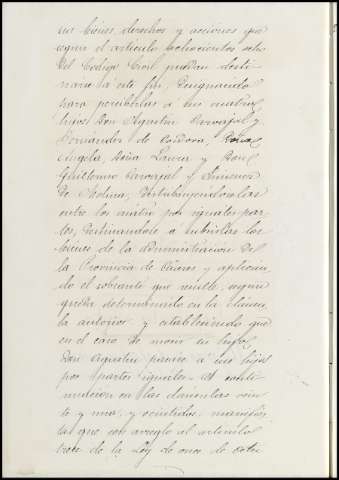 sus bienes, derechos y acciones que
segun el articulo ochocientos ocho
del Codigo Civil puedan desti-
narse a este fin, designando
para percibirlas a sus cuatro
hijos Don Agustin Carvajal y
Fernandez de Cordova, Doña
Angela, Doña Laura y Don
Guillermo Carvajal y Jimenez
de Molina, distribuyendolas
entre los cuatro por iguales par-
tes, destinandole a cubrirlas los
bienes de la administracion de
la Provincia de Caceres y aplican-
do el sobrante que resulte, segun
queda determinado en la clausu-
la anterior y estableciendo que
en el caso de morir su hijo
Don Agustin pasase a sus hijos
por partes iguales. A conti-
nuacion en las clausulas vein-
te y una, y veintidos, manifies-
ta que con arreglo al articulo
trece de la Ley de once de